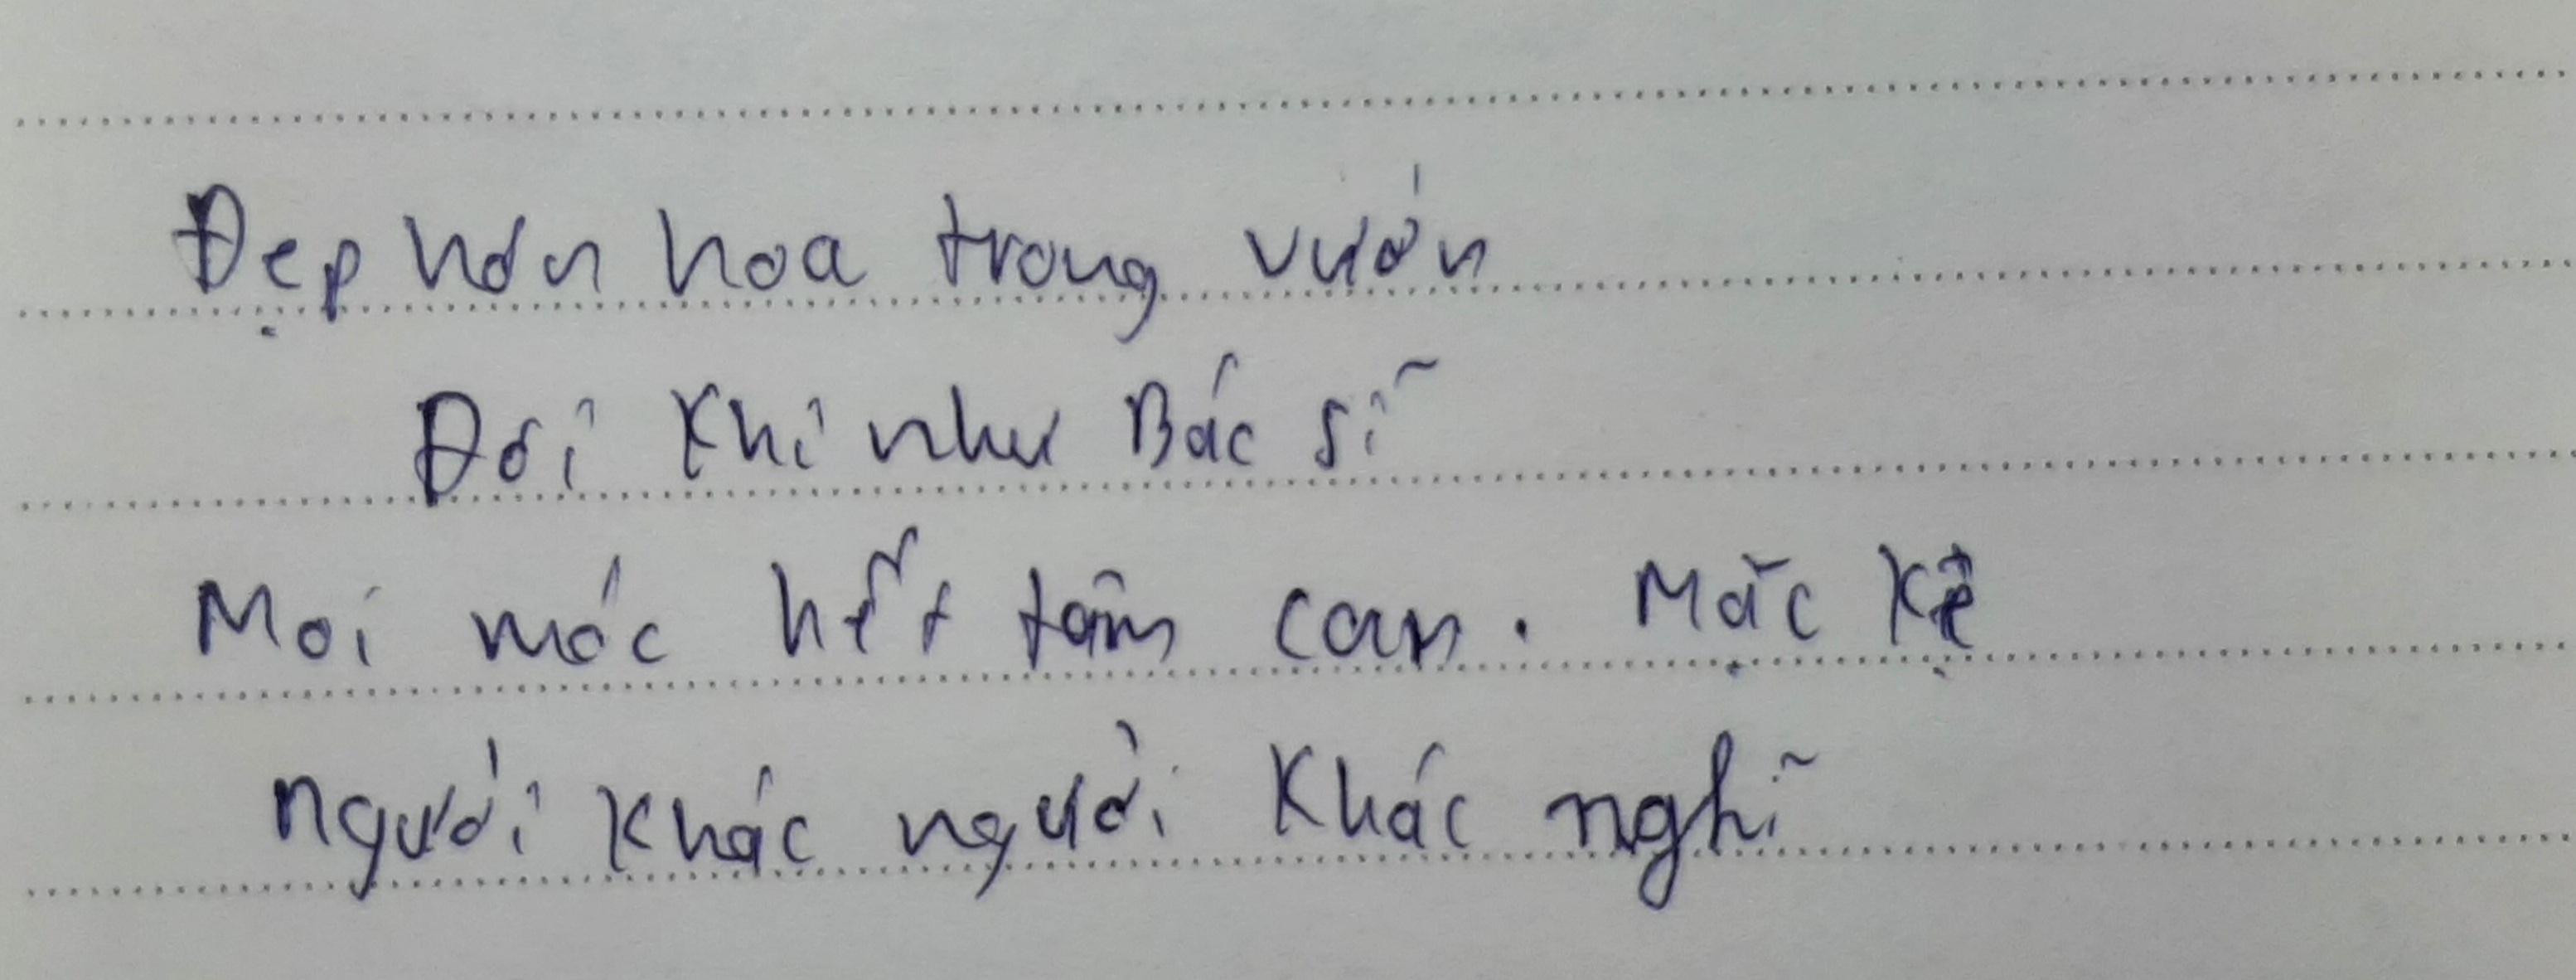 Đẹp hơn hoa trong vườn
Đôi khi như Bác sĩ
Moi móc hết tâm can. Mặc kệ
người khác người khác nghĩ